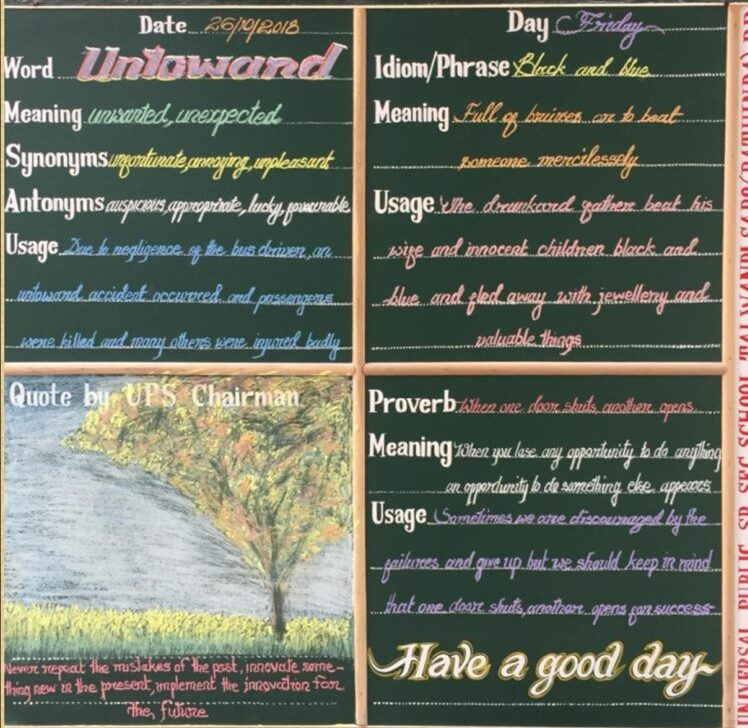 Date 26/10/2018
Word Untoward
Meaning unwanted, unexpected
Synonyms unfortunate, annoying, unpleasant
Antonyms auspicious, appropriate, lucky, favourable
Usage Due to negligence of the bus driver, an
untoward accident occurred and passengers
were killed and many others were injured badly
Day Friday
Idiom/Phrase Black and blue
Meaning Full of bruises or to beat
someone mercilessly
Usage The drunkard father beat his
wife and innocent children black and
blue and fled away with jewellery and
valuable things
Quote by UPS Chairman
Never repeat the mistakes of the past, innovate some-
thing new in the present, implement the innovation for
the future
Proverb When one door shuts, another opens
Meaning When you lose any opportunity to do anything
an opportunity to do something else appears
Usage Sometimes we are discouraged by the
failures and give up but we should keep in mind
that one door shuts, another opens for success
Have a good day
UNIVERSAL PUBLIC SR. SEC. SCHOOL